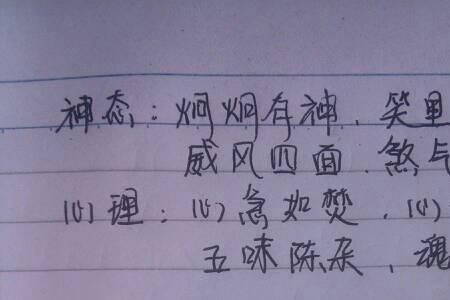 神态：炯炯有神、笑里
威风四面、煞气
心理：心急如焚、心
五味陈杂、魂